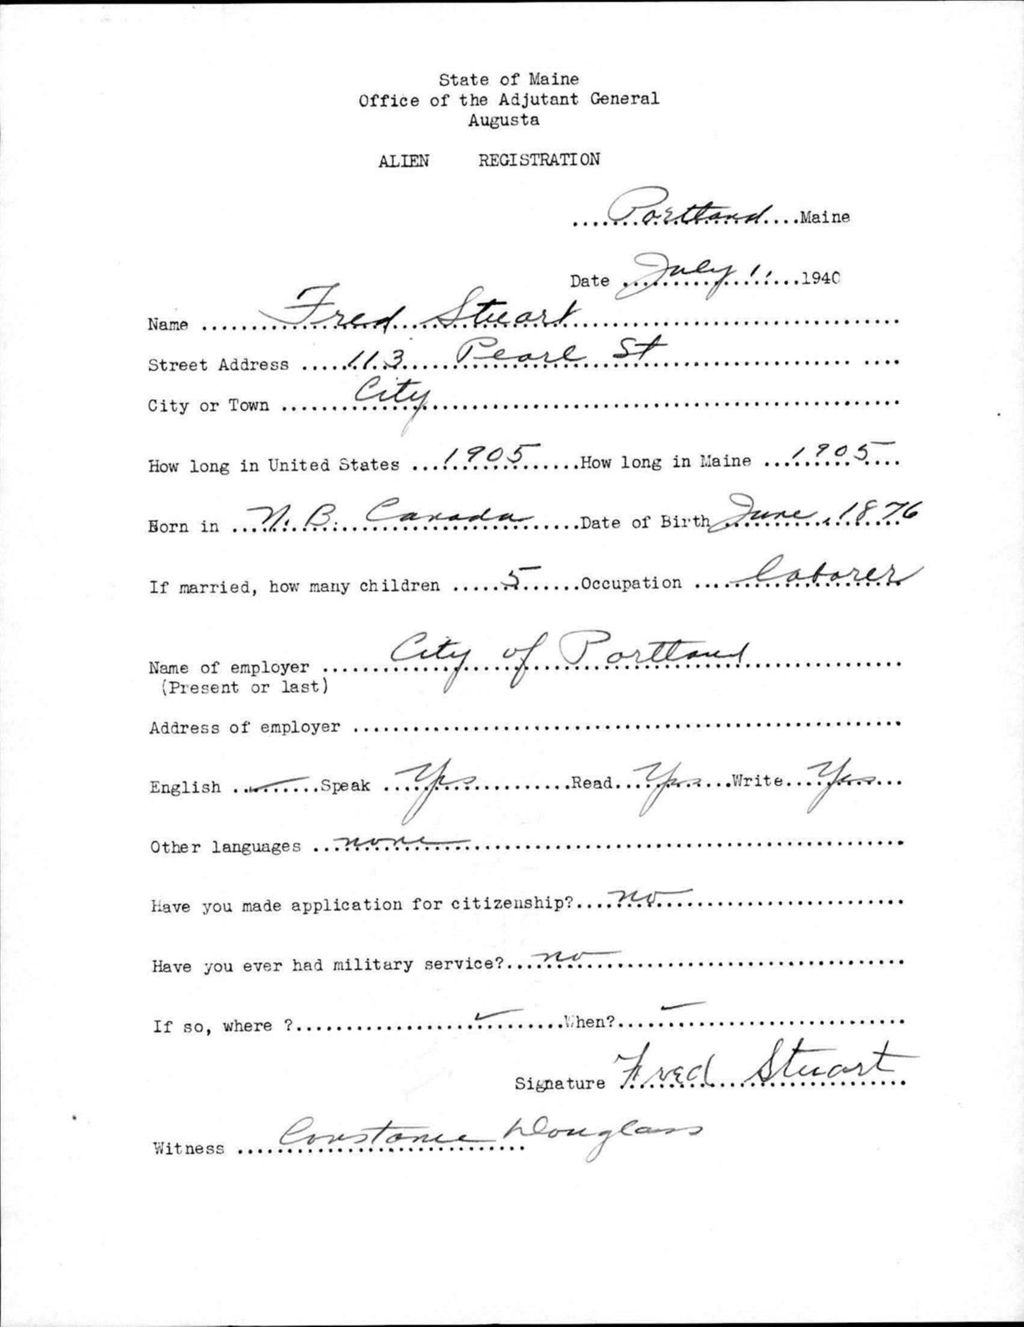 State of Maine
Office of the Adjutant General
Augusta
ALIEN REGISTRATION
Portland Maine
Date July 1, 1940
Name Fred Stuart
Street Address 113 Pearl St
City or Town City
How long in United States 1905 How long in Maine 1905
Born in N. B. Canada Date of Birth June, 1876
If married, how many children 5 Occupation Laborer
Name of employer City of Portland
(Present or last)
Address of employer
English Speak Yes Read Yes Write Yes
Other languages none
Have you made application for citizenship? no
Have you ever had military service? no
If so, where ? When?
Signature Fred Stuart
Witness Constance Douglass